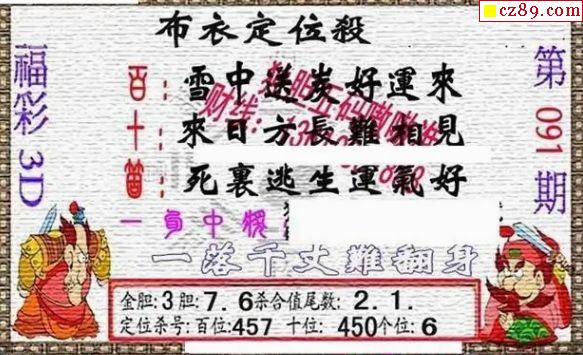 cz89.com
布衣定位殺
福彩3D
第091期
百:雪中送炭好運來
十:來日方長難相見
個:死裏逃生運氣好
一負中
一落千丈難翻身
金胆:3胆:7.6杀合值尾数:2.1.
定位杀号:百位:457 十位:450个位:6